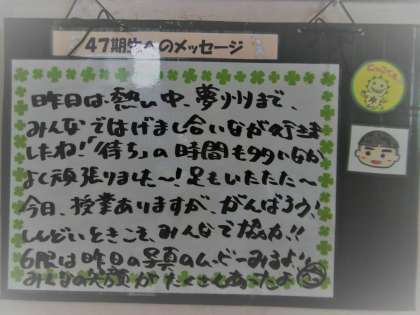 47期生へのメッセージ
昨日は、熱い中、夢州まで、
みんなではげまし合いながら行きま
したね!「待ち」の時間も多いなか、
よく頑張りました〜!足もいたた〜
今日、授業ありますが、がんばろう!
しんどいときこそ、みんなで
6限は昨日の写真のムービーみるよ!
みんなの笑顔がたくさんあったよ